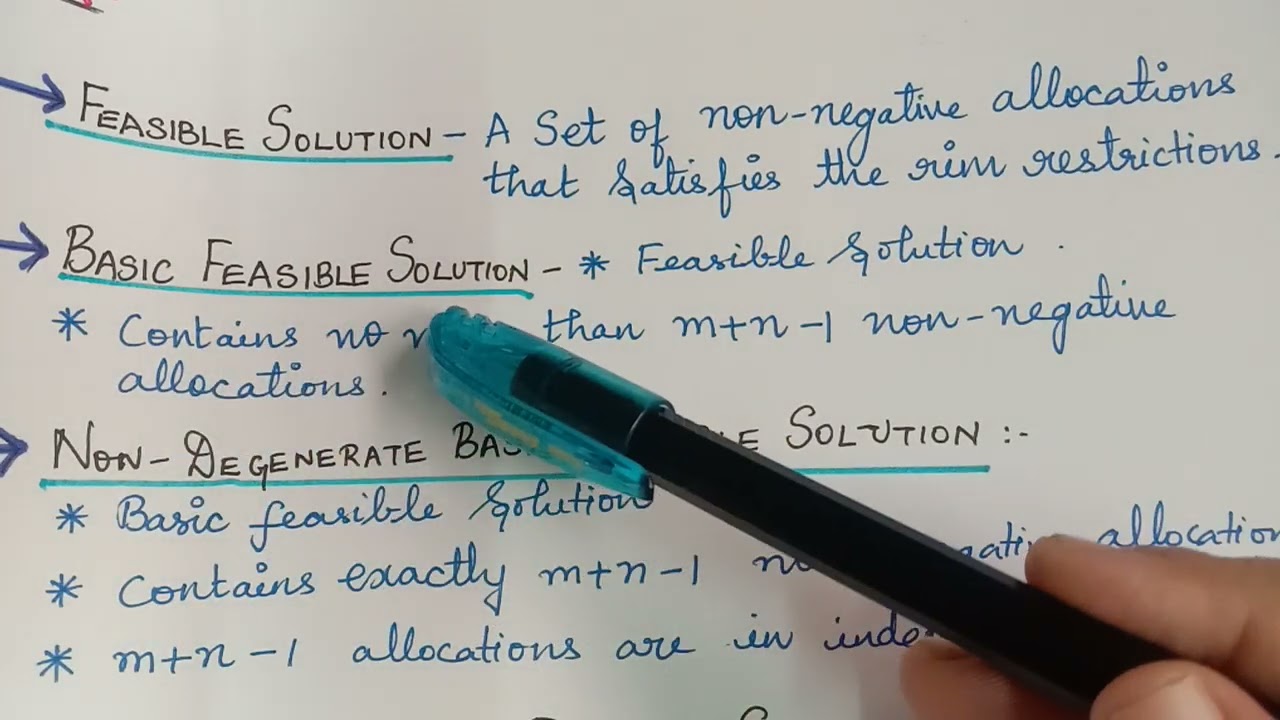 FEASIBLE SOLUTION - A Set of non-negative allocations
that satisfies the rim restrictions.
BASIC FEASIBLE SOLUTION - * Feasible Solution.
* Contains no than m+n-1 non-negative
allocations.
NON-DEGENERATE SOLUTION :-
* Basic feasible Solution
* Contains exactly m+n-1 allocation
* m+n-1 allocations are in